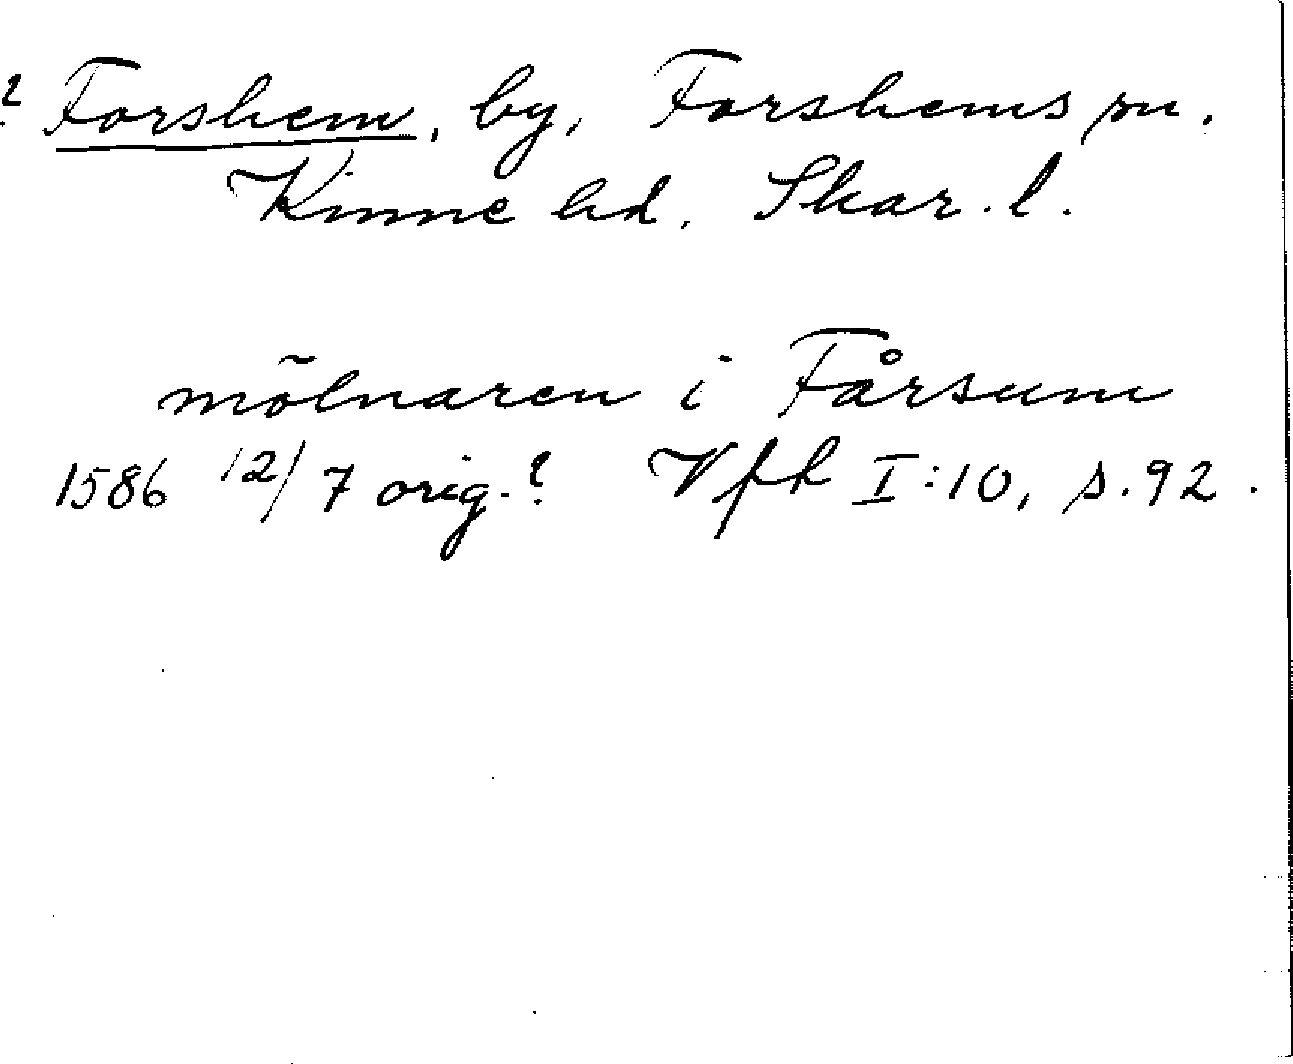 ? Forshem, by, Forshems sn.
Kinne hd. Skar. l.
mölnaren i Fårsum
1586 12/7 orig.? Vfh I:10, s. 92.